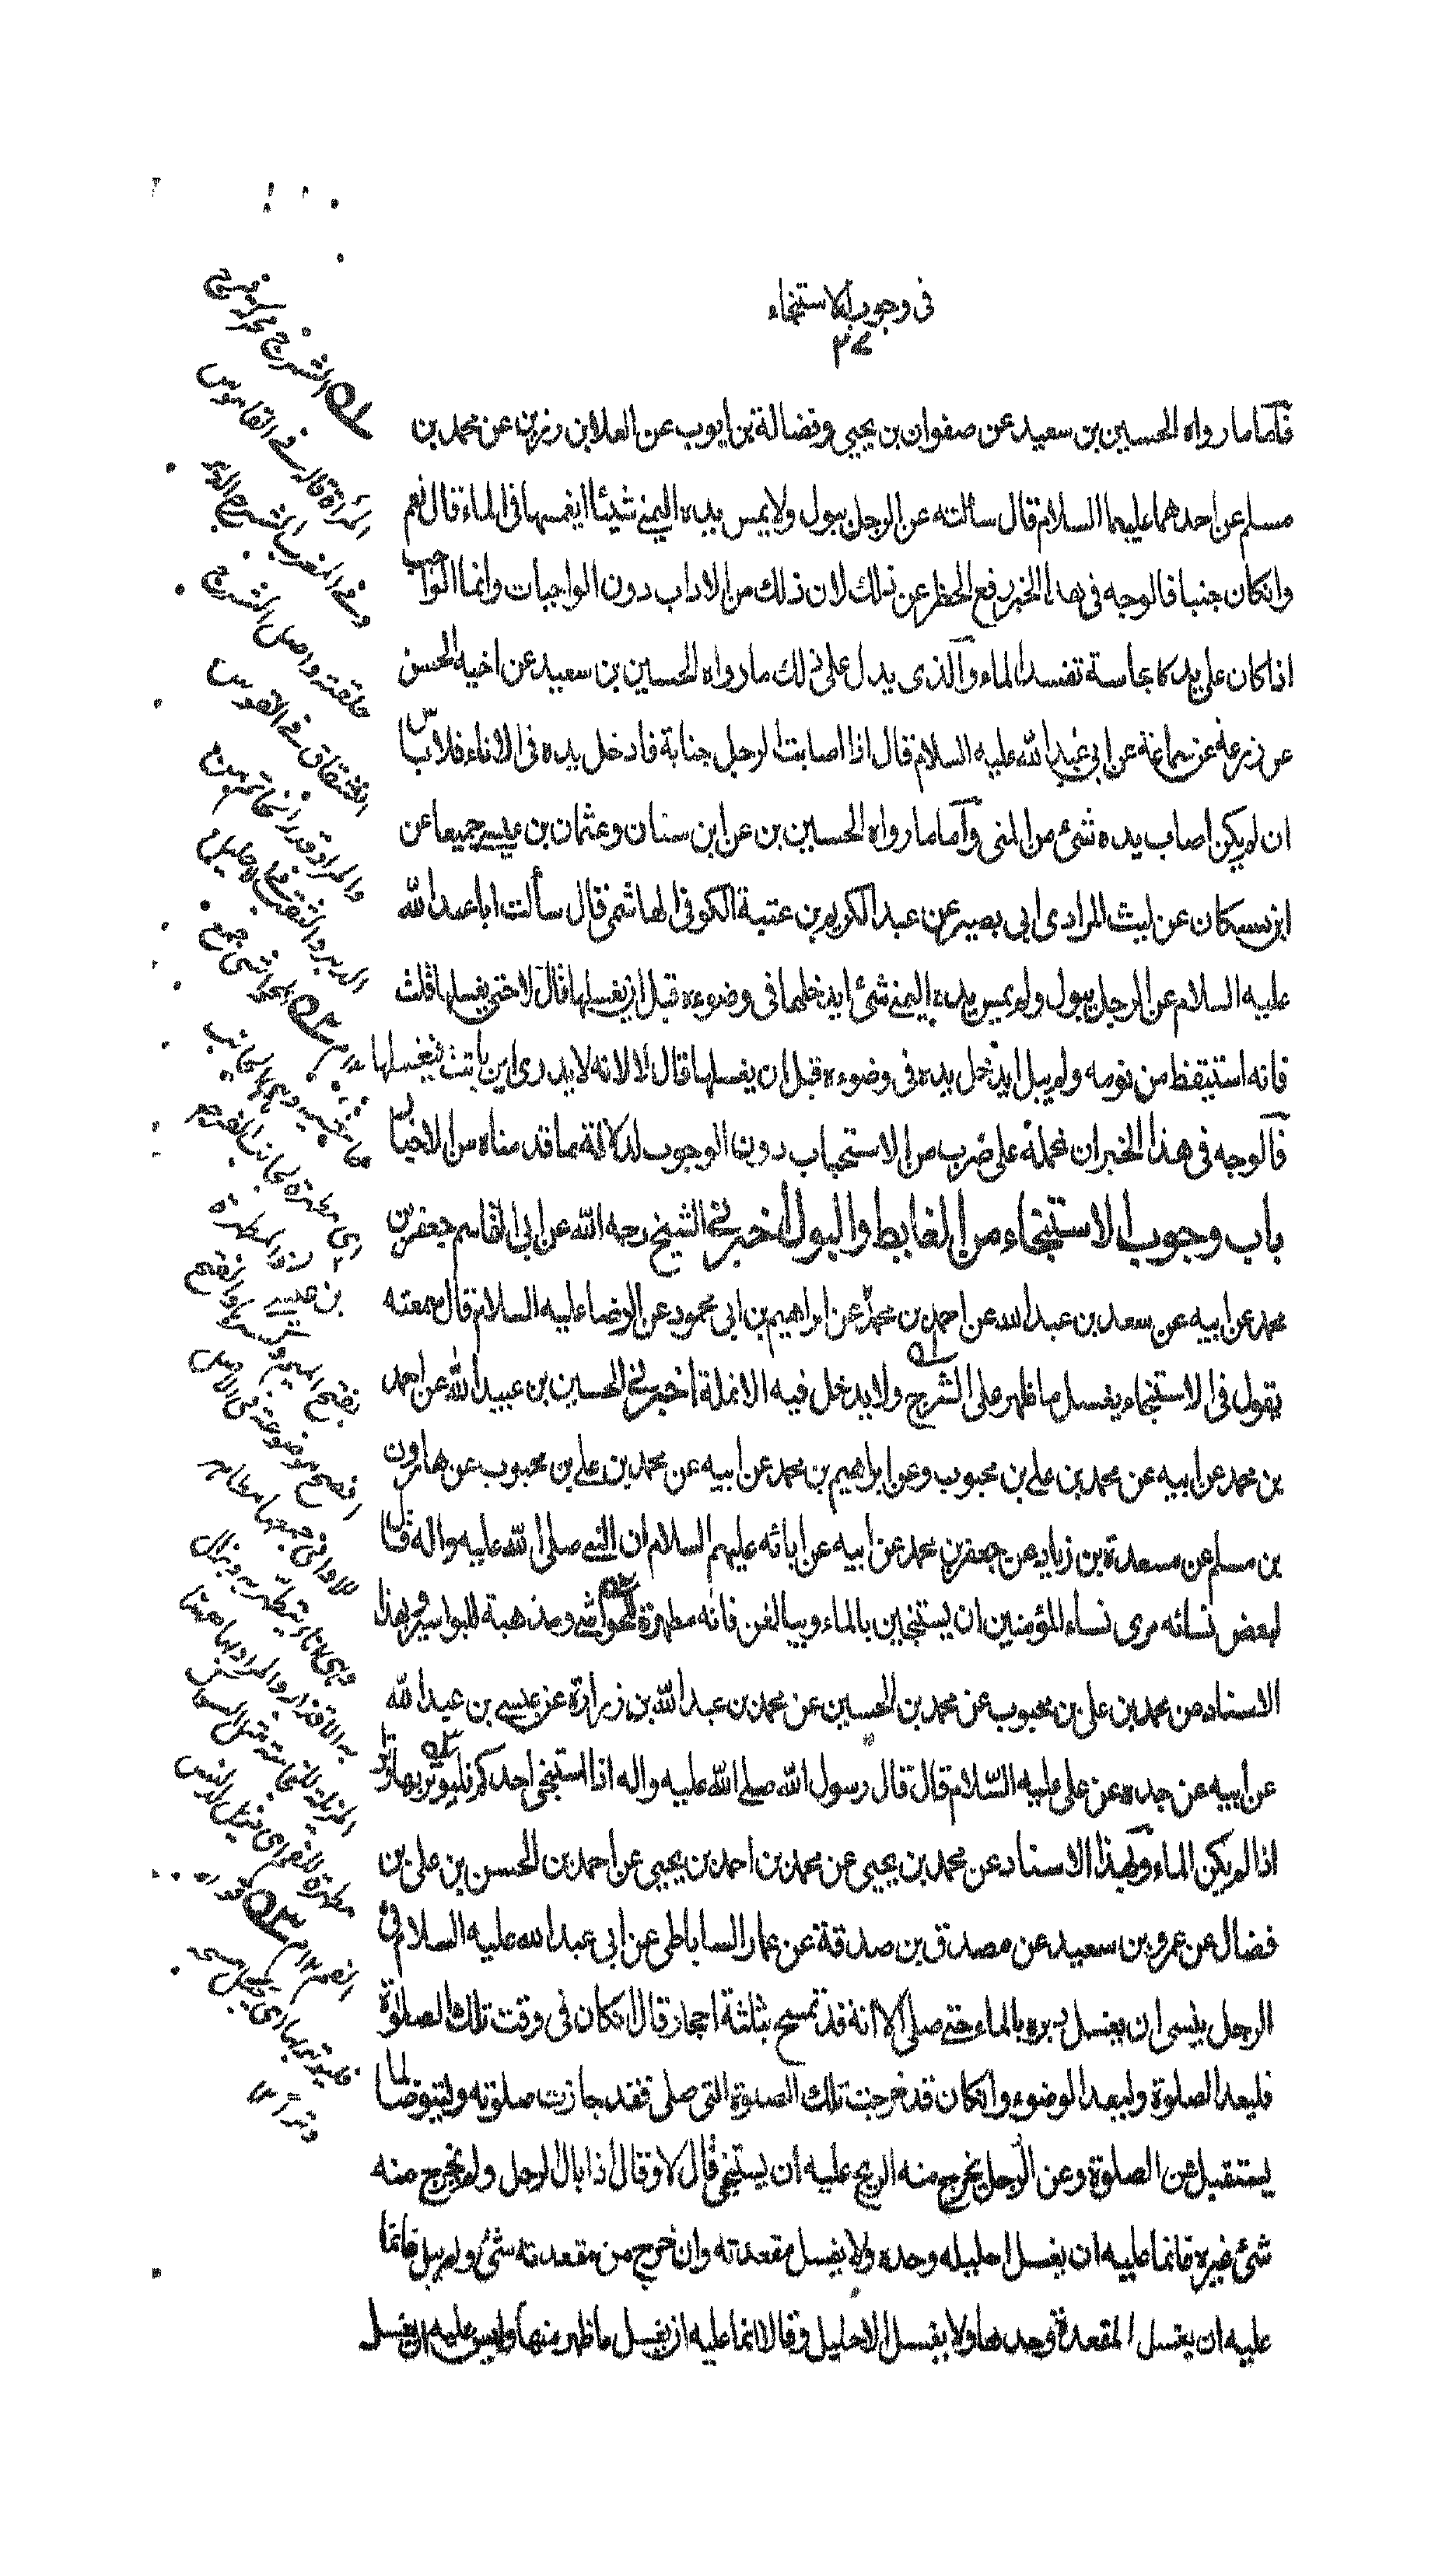 في وجوب الاستنجاء
٢٧
فاما ما رواه الحسين بن سعيد عن صفوان بن يحيى وفضالة بن ايوب عن العلا بن رزين عن محمد بن
مسلم عن احدهما عليهما السلام قال سألته عن الرجل يبول ولا يمس يده اليمنى شيئا ايغمسها في الماء قال نعم
وانكان جنبا فالوجه في هذا الخبر رفع الحظر عن ذلك لان ذلك من الاداب دون الواجبات وانما الواجب
اذا كان على يده نجاسة تفسد الماء والذى يدل على ذلك ما رواه الحسين بن سعيد عن اخيه الحسن
عن زرعة عن سماعة عن ابي عبد الله عليه السلام قال اذا اصابت الرجل جنابة فادخل يده في الاناء فلا باس
ان لم يكن اصاب يده شئ من المنى واما ما رواه الحسين بن عن ابن سنان وعثمان بن عيسى جميعا عن
ابن مسكان عن ليث المرادى ابي بصير عن عبد الكريم بن عتبة الكوفي الهاشمي قال سألت ابا عبد الله
عليه السلام عن الرجل يبول ولم يمس يده اليمنى شئ ايدخلها في وضوءه قبل ان يغسلها قال لا حتى يغسلها قلت
فانه استيقظ من نومه ولم يبل ايدخل يده في وضوءه قبل ان يغسلها قال لا لانه لا يدرى اين باتت فيغسلها
فالوجه في هذا الخبر ان نحمله على ضرب من الاستحباب دون الوجوب لدلالة ما قدمناه من الاخبار
باب وجوب الاستنجاء من الغايط والبول اخبرني الشيخ رحمه الله عن ابي القاسم جعفر بن
محمد عن ابيه عن سعد بن عبد الله عن احمد بن محمد عن ابراهيم بن ابي محمود عن الرضا عليه السلام قال سمعته
يقول في الاستنجاء يغسل ما ظهر على الشرج ولا يدخل فيه الانملة اخبرني الحسين بن عبيد الله عن احمد
بن محمد عن ابيه عن محمد بن علي بن محبوب وعن ابراهيم بن محمد عن ابيه عن محمد بن علي بن محبوب عن هارون
بن مسلم عن مسعدة بن زياد عن جعفر بن محمد عن ابيه عن ابائه عليهم السلام ان النبي صلى الله عليه واله قال
لبعض نسائه مرى نساء المؤمنين ان يستنجين بالماء ويبالغن فانه مطهرة للحواشى ومذهبة للبواسير وبهذا
الاسناد عن محمد بن علي بن محبوب عن محمد بن الحسين عن محمد بن عبد الله بن زرارة عن عيسى بن عبد الله
عن ابيه عن جده عن علي عليه السلام قال قال رسول الله صلى الله عليه واله اذا استنجى احدكم فليوتر بها وترا
اذا لم يكن الماء وبهذا الاسناد عن محمد بن يحيى عن محمد بن احمد بن يحيى عن احمد بن الحسن بن علي بن
فضال عن عمرو بن سعيد عن مصدق بن صدقة عن عمار الساباطى عن ابي عبد الله عليه السلام في
الرجل ينسى ان يغسل دبره بالماء حتى صلى الا انه قد تمسح بثلثة احجار قال ان كان في وقت تلك الصلوة
فليعد الصلوة وليعد الوضوء وان كان قد خرجت تلك الصلوة التي صلى فقد جازت صلوته وليتوضا لما
يستقبل من الصلوة وعن الرجل يخرج منه الريح عليه ان يستنجى قال لا وقال اذا بال الرجل ولم يخرج منه
شئ غيره فانما عليه ان يغسل احليله وحده ولا يغسل مقعدته وان خرج من مقعدته شئ ولم يبل فانما
عليه ان يغسل المقعدة وحدها ولا يغسل الاحليل وقال انما عليه ان يغسل ما ظهر منها وليس عليه ان يغسل
الشرج محركة فرج
المرأة قاله في القاموس
وفي المغرب الشرج الدبر
حلقته واصل الشرج
انشقاق في القوس